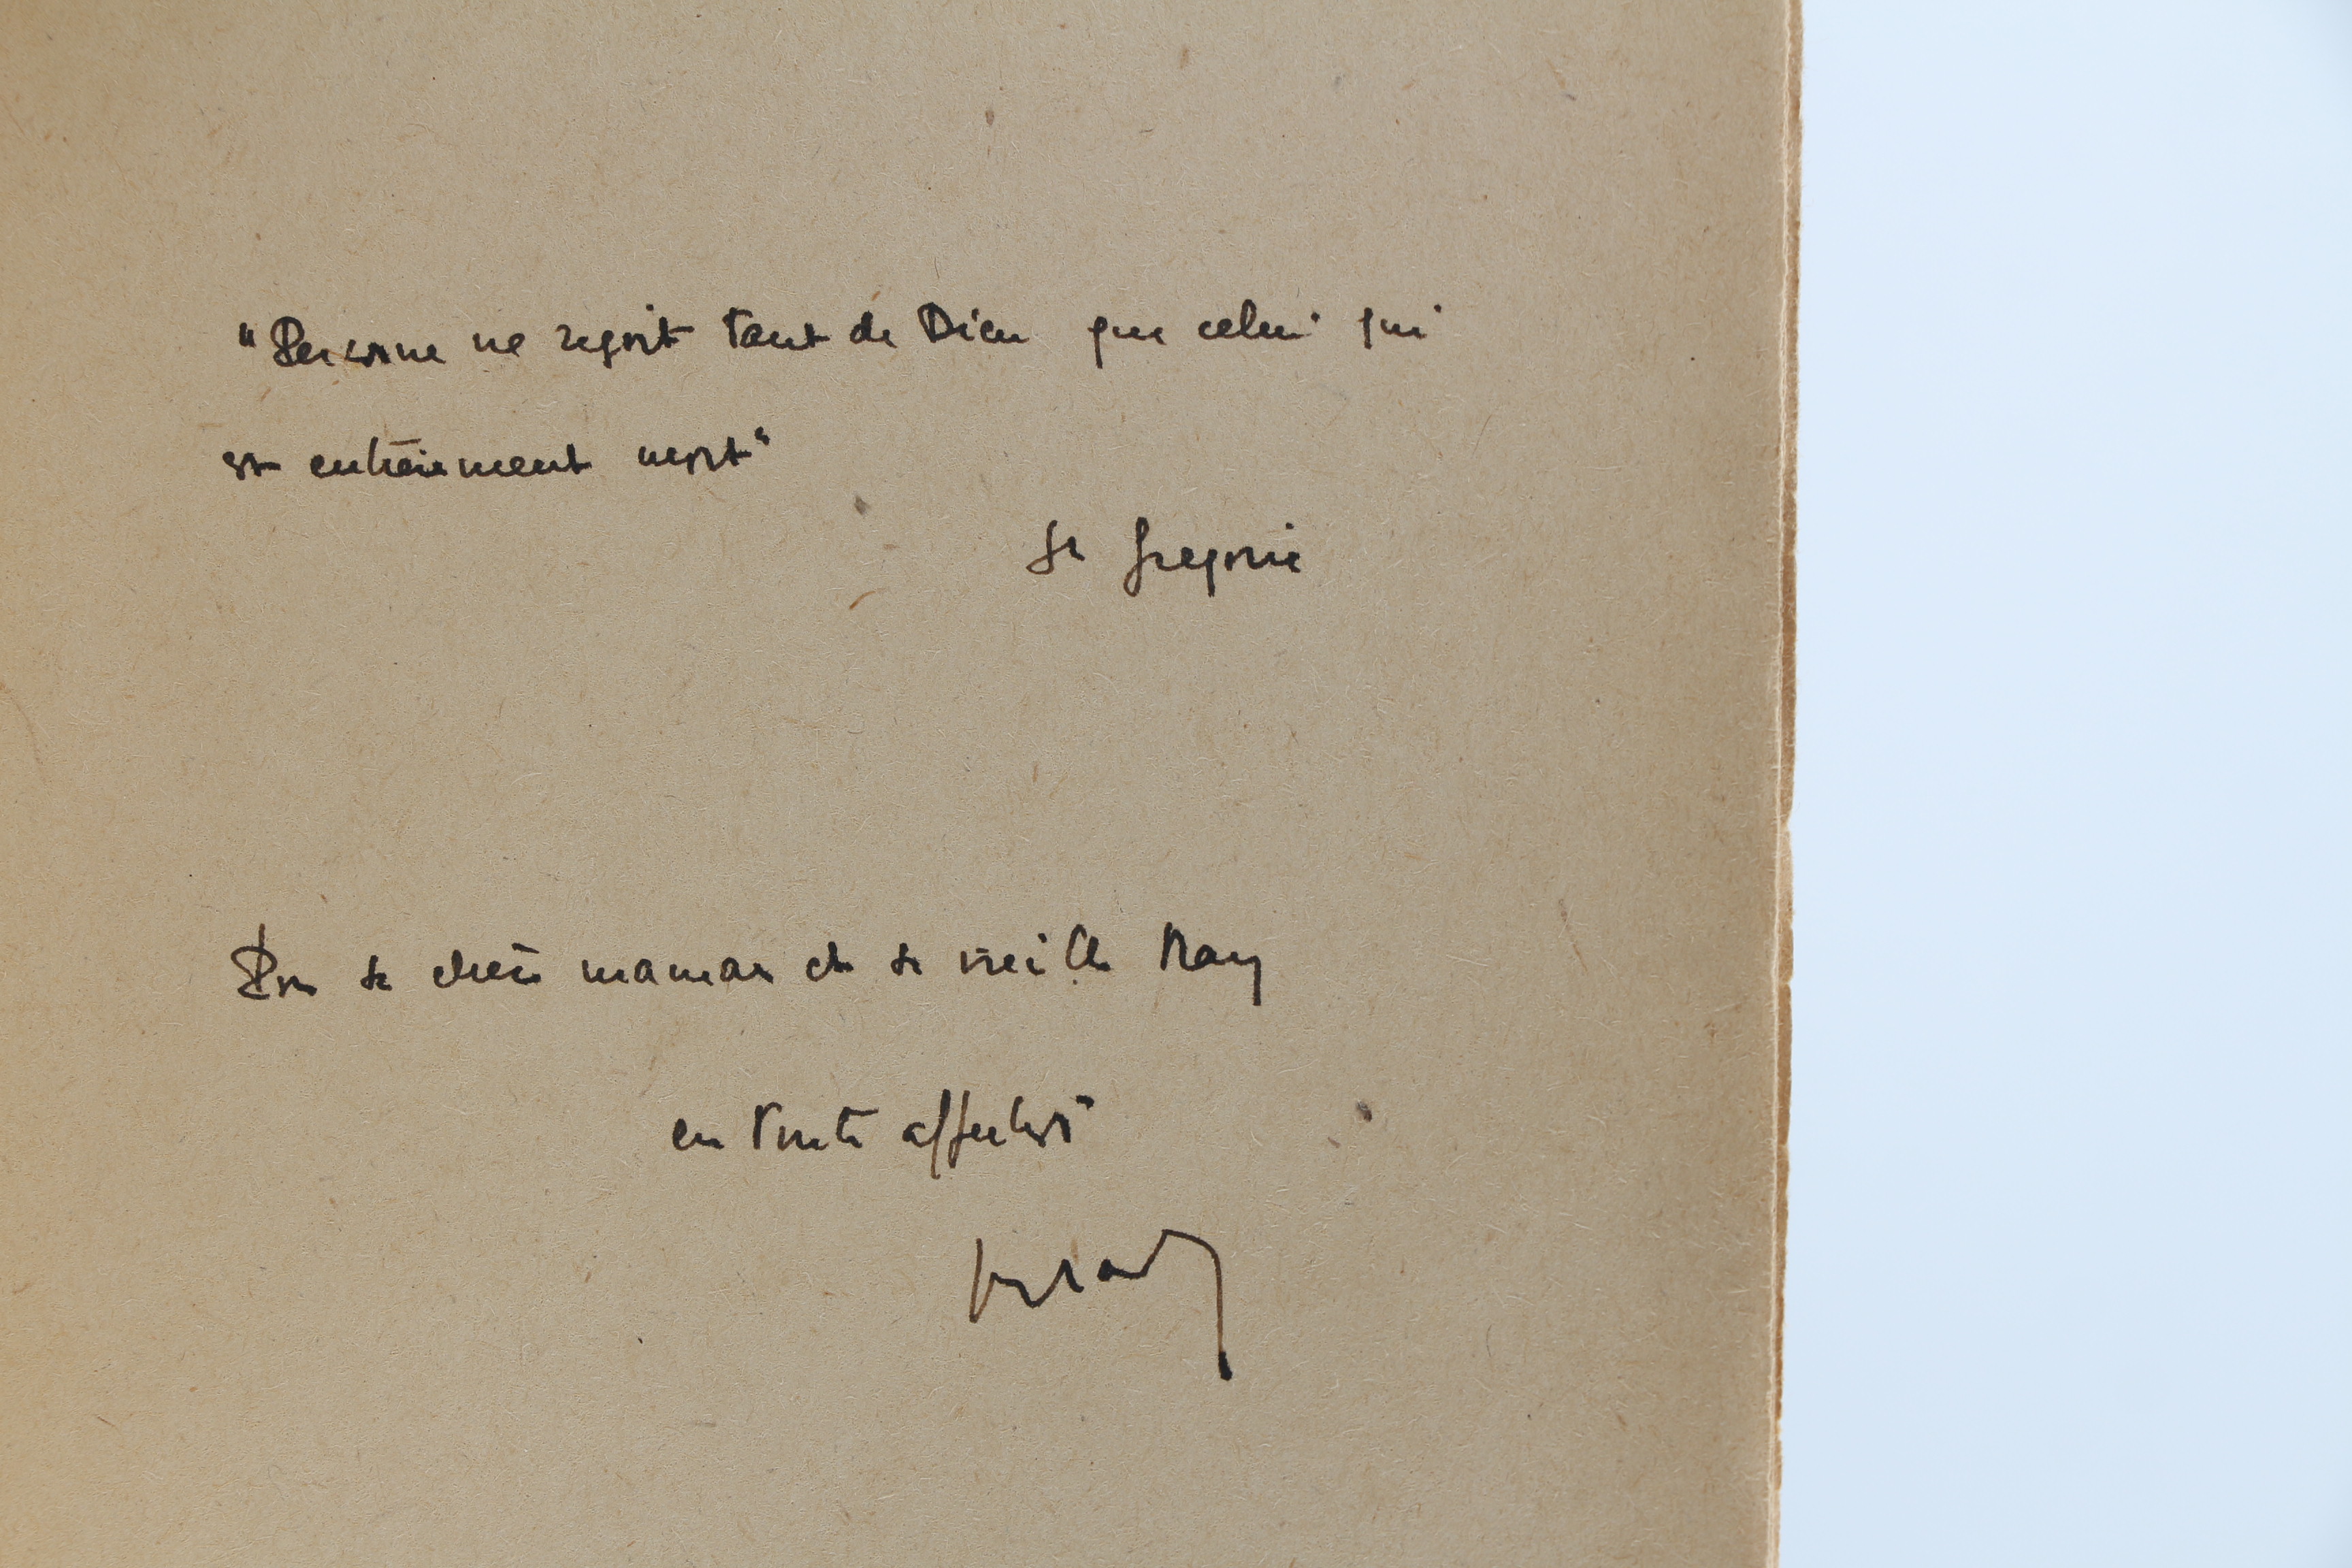 "Personne ne reçoit tant de Dieu que celui qui
est entièrement mort"
St Gregoire
Pour sa chère maman et sa vieille Many
en toute affection